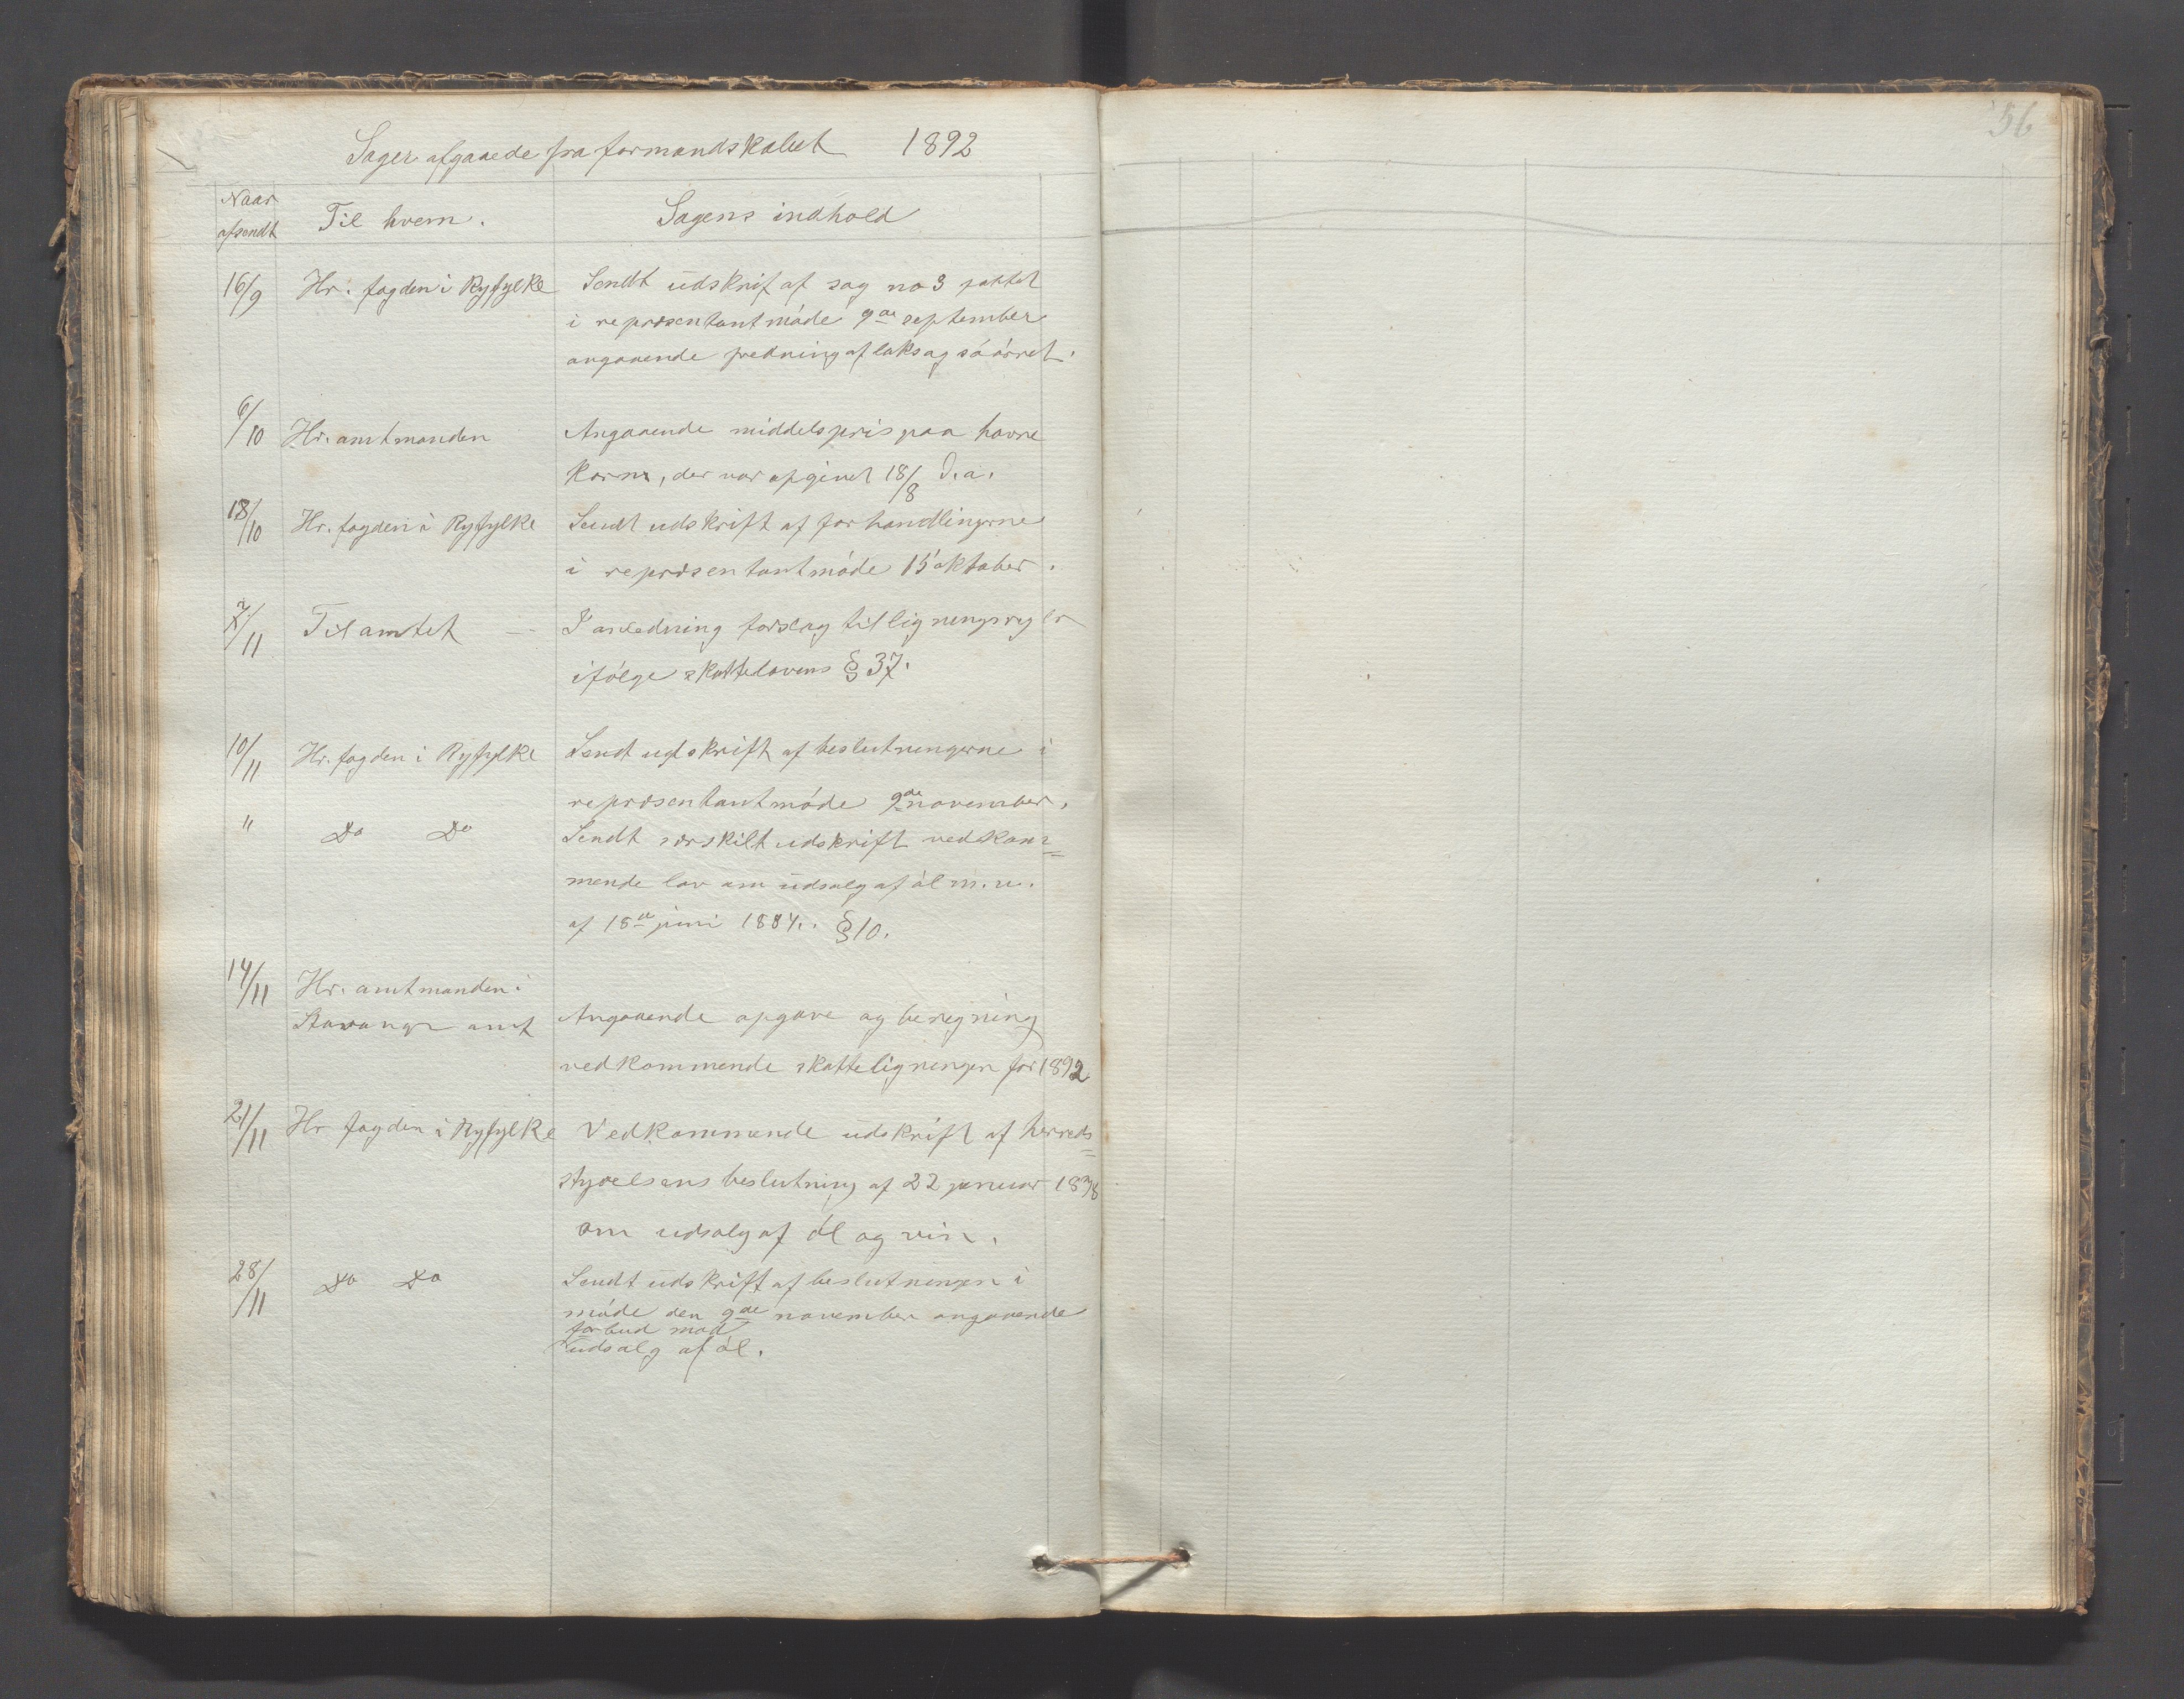 56
Sager afgaaede fra formandskabet 1892
Naar afsendt
Til hvem.
Sagens indhold
16/9 Hr. fogden i Ryfylke Sendt udskrif af sag no 3 fattet
i repræsentantmøde 9de september
angaaende fredning af laks og søørret.
6/10 Hr. amtmanden Angaaende middelspris paa havre
korn, der var opgivet 18/8 d.a.
18/10 Hr. fogden i Ryfylke Sendt udskrift af forhandlingerne
i repræsentantmøde 15 oktober.
7/11 Til amtet — I anledning forslag til ligningsregler
ifølge skattelovens § 37.
10/11 Hr. fogden i Ryfylke Sendt udskrift af beslutningerne i
repræsentantmøde 9de november.
" Do Do Sendt særskilt udskrift vedkom=
mende lov om udsalg af øl m.v.
af 1884. § 10.
14/11 Hr. amtmanden i
Stavanger amt Angaaende opgave og beregning
vedkommende skatteligningen for 1892
21/11 Hr fogden i Ryfylke Vedkommende udskrift af herreds=
styrelsens beslutning af 22 januar 1878
om udsalg af øl og vin.
28/11 Do Do Sendt udskrift af beslutningen i
møde den 9de november angaaende
forbud mod
udsalg af øl.